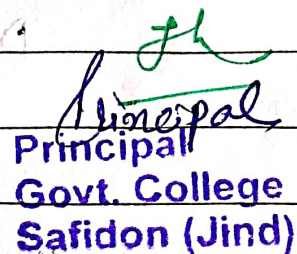 Principal
Principal
Govt. College
Safidon (Jind)